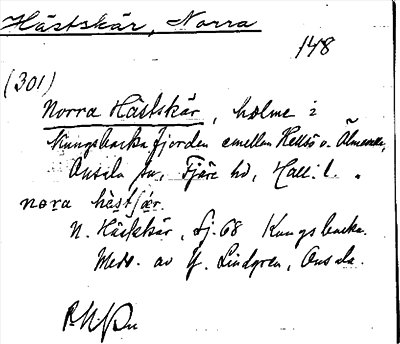 Hästskär, Norra
148
(301)
Norra Hästskär, holme i
Kungsbacka fjorden emellan Kellsö o. Älmanäs,
Onsala sn, Fjäre hd, Hall. l.
nora hästʃær.
N. Hästskär, Sj. 68 Kungsbacka.
Medd. av Y. Lindgren, Onsala.